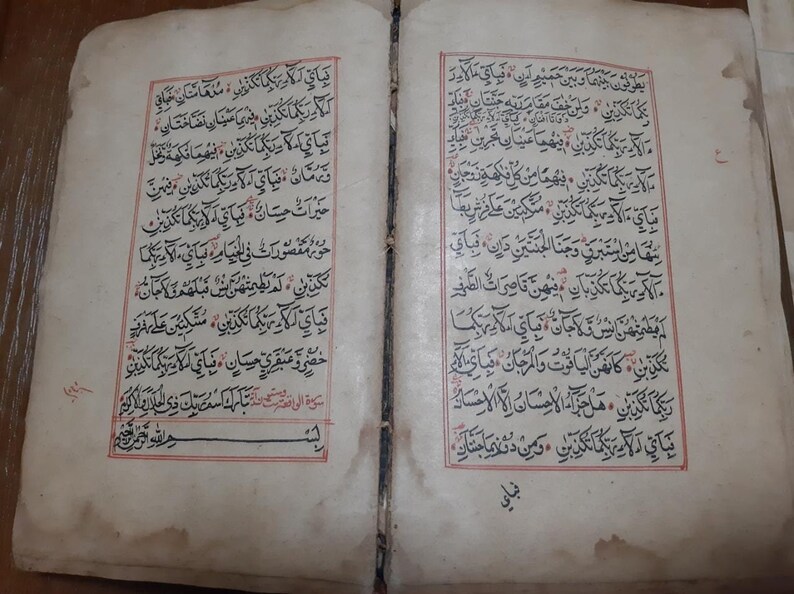 يَطُوفُونَ بَيْنَهَا وَبَيْنَ حَمِيمٍ اٰنٍ فَبِاَيِّ ءَالَآءِ رَ
بِّكُمَا تُكَذِّبٰنِ وَلِمَنْ خَافَ مَقَامَ رَبِّهٖ جَنَّتَانِ فَبِاَيِّ
ءَالَآءِ رَبِّكُمَا تُكَذِّبٰنِ ذَوَاتَا اَفْنَانٍ فَبِاَيِّ ءَالَآءِ رَبِّكُمَا تُكَذِّبٰنِ فِيهِمَا عَيْنَانِ تَجْرِيٰنِ فَبِاَيِّ
ءَالَآءِ رَبِّكُمَا تُكَذِّبٰنِ فِيهِمَا مِنْ كُلِّ فَاكِهَةٍ زَوْجَانِ
فَبِاَيِّ ءَالَآءِ رَبِّكُمَا تُكَذِّبٰنِ مُتَّكِـِٔينَ عَلٰى فُرُشٍ بَطَآ
ئِنُهَا مِنْ اِسْتَبْرَقٍ وَجَنَا الْجَنَّتَيْنِ دَانٍ فَبِاَيِّ
ءَالَآءِ رَبِّكُمَا تُكَذِّبَانِ فِيهِنَّ قَاصِرَاتُ الطَّرْفِ
لَمْ يَطْمِثْهُنَّ اِنْسٌ وَلَا جَآنٌّ فَبِاَيِّ ءَالَآءِ رَبِّكُمَا
تُكَذِّبٰنِ كَاَنَّهُنَّ الْيَاقُوتُ وَالْمَرْجَانُ فَبِاَيِّ ءَالَآءِ
رَبِّكُمَا تُكَذِّبٰنِ هَلْ جَزَآءُ الْاِحْسَانِ اِلَّا الْاِحْسَانُ
فَبِاَيِّ ءَالَآءِ رَبِّكُمَا تُكَذِّبٰنِ وَمِنْ دُونِهِمَا جَنَّتَانِ
فباي
فَبِاَيِّ ءَالَآءِ رَبِّكُمَا تُكَذِّبٰنِ مُدْهَآمَّتَانِ فَبِاَيِّ
ءَالَآءِ رَبِّكُمَا تُكَذِّبٰنِ فِيهِمَا عَيْنَانِ نَضَّاخَتَانِ
فَبِاَيِّ ءَالَآءِ رَبِّكُمَا تُكَذِّبٰنِ فِيهِمَا فَاكِهَةٌ وَنَخْلٌ
وَرُمَّانٌ فَبِاَيِّ ءَالَآءِ رَبِّكُمَا تُكَذِّبٰنِ فِيهِنَّ
خَيْرَاتٌ حِسَانٌ فَبِاَيِّ ءَالَآءِ رَبِّكُمَا تُكَذِّبٰنِ
حُورٌ مَقْصُورَاتٌ فِي الْخِيَامِ فَبِاَيِّ ءَالَآءِ رَبِّكُمَا
تُكَذِّبٰنِ لَمْ يَطْمِثْهُنَّ اِنْسٌ قَبْلَهُمْ وَلَا جَآنٌّ
فَبِاَيِّ ءَالَآءِ رَبِّكُمَا تُكَذِّبٰنِ مُتَّكِـِٔينَ عَلٰى رَفْرَفٍ
خُضْرٍ وَعَبْقَرِيٍّ حِسَانٍ فَبِاَيِّ ءَالَآءِ رَبِّكُمَا تُكَذِّبٰنِ
تَبَارَكَ اسْمُ رَبِّكَ ذِي الْجَلَالِ وَالْاِكْرَامِ
سورة الواقعة
بِسْمِ اللّٰهِ الرَّحْمٰنِ الرَّحِيمِ
ع